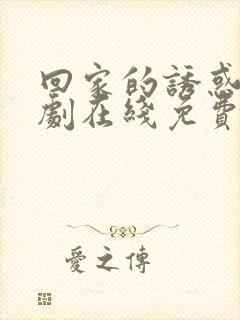 回家的誘惑
劇在綫免費
愛之傳